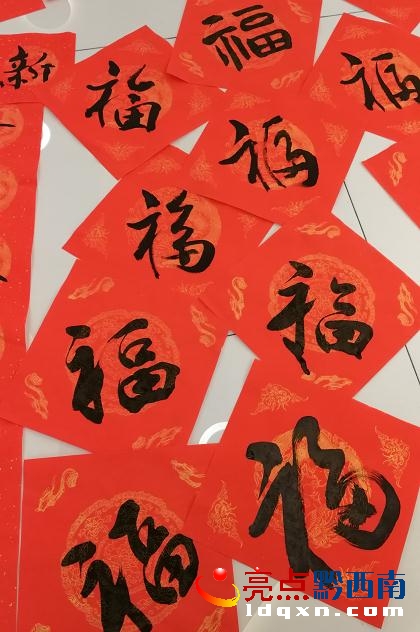 福
新
福
福
福
福
福
福
福
福
亮点黔西南
ldqxn.com